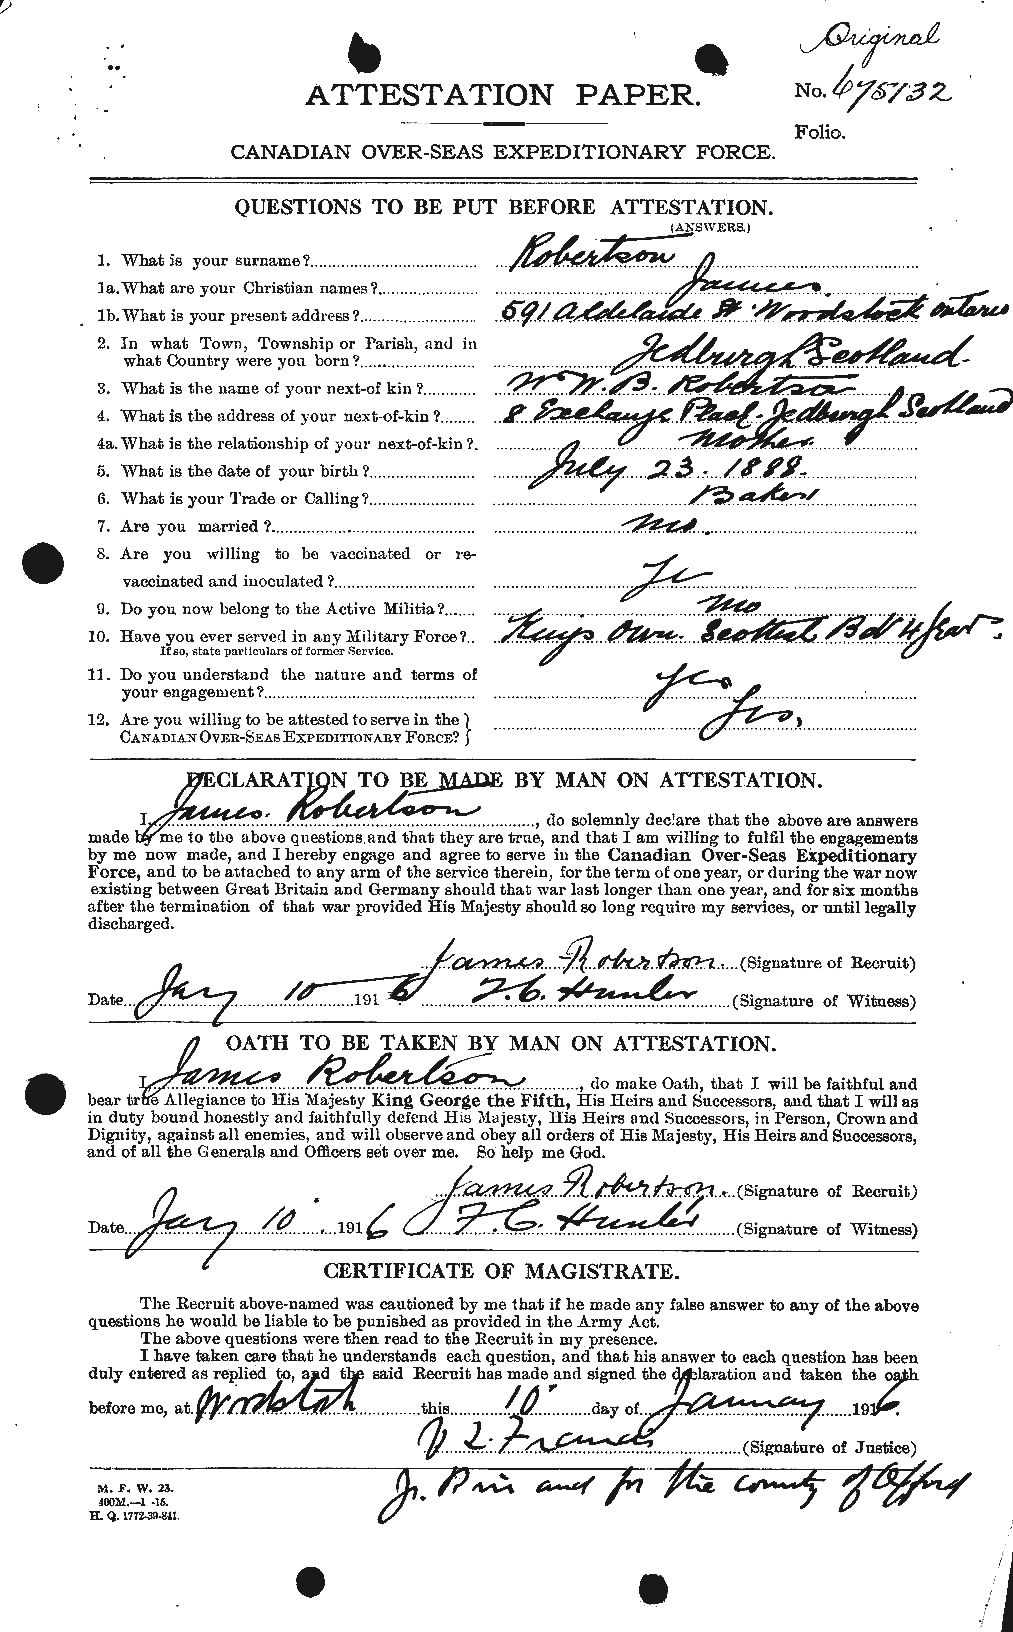 Original
ATTESTATION PAPER.
No. 675132
Folio.
CANADIAN OVER-SEAS EXPEDITIONARY FORCE.
QUESTIONS TO BE PUT BEFORE ATTESTATION.
(ANSWERS.)
1. What is your surname? Robertson
1a. What are your Christian names? James.
1b. What is your present address? 591 Aldelaide St Woodstock Ontario
2. In what Town, Township or Parish, and in
what Country were you born? Jedburgh Scotland.
3. What is the name of your next-of kin? W. B. Robertson
4. What is the address of your next-of-kin? 8 Exchange Place. Jedburgh Scotland
4a. What is the relationship of your next-of-kin? Mother
5. What is the date of your birth? July 23. 1888.
6. What is your Trade or Calling? Baker
7. Are you married? No.
8. Are you willing to be vaccinated or re-
vaccinated and inoculated? Ye
9. Do you now belong to the Active Militia? No
10. Have you ever served in any Military Force? Kings Own. Scottish Bd 4 year.
If so, state particulars of former Service.
11. Do you understand the nature and terms of
your engagement? Yes
12. Are you willing to be attested to serve in the } Yes,
CANADIAN OVER-SEAS EXPEDITIONARY FORCE? }
DECLARATION TO BE MADE BY MAN ON ATTESTATION.
I, James. Robertson, do solemnly declare that the above are answers
made by me to the above questions and that they are true, and that I am willing to fulfil the engagements
by me now made, and I hereby engage and agree to serve in the Canadian Over-Seas Expeditionary
Force, and to be attached to any arm of the service therein, for the term of one year, or during the war now
existing between Great Britain and Germany should that war last longer than one year, and for six months
after the termination of that war provided His Majesty should so long require my services, or until legally
discharged.
James Robertson. (Signature of Recruit)
Date Jany 10 1916 F. C. Hunter (Signature of Witness)
OATH TO BE TAKEN BY MAN ON ATTESTATION.
I, James Robertson, do make Oath, that I will be faithful and
bear true Allegiance to His Majesty King George the Fifth, His Heirs and Successors, and that I will as
in duty bound honestly and faithfully defend His Majesty, His Heirs and Successors, in Person, Crown and
Dignity, against all enemies, and will observe and obey all orders of His Majesty, His Heirs and Successors,
and of all the Generals and Officers set over me. So help me God.
James Robertson. (Signature of Recruit)
Date Jany 10 1916 F. C. Hunter (Signature of Witness)
CERTIFICATE OF MAGISTRATE.
The Recruit above-named was cautioned by me that if he made any false answer to any of the above
questions he would be liable to be punished as provided in the Army Act.
The above questions were then read to the Recruit in my presence.
I have taken care that he understands each question, and that his answer to each question has been
duly entered as replied to, and the said Recruit has made and signed the declaration and taken the oath
before me, at Woodstock this 10 day of January 1916.
Francis (Signature of Justice)
in and for the county of Oxford
M. F. W. 23.
400M.—1-15.
H. Q. 1772-39-841.